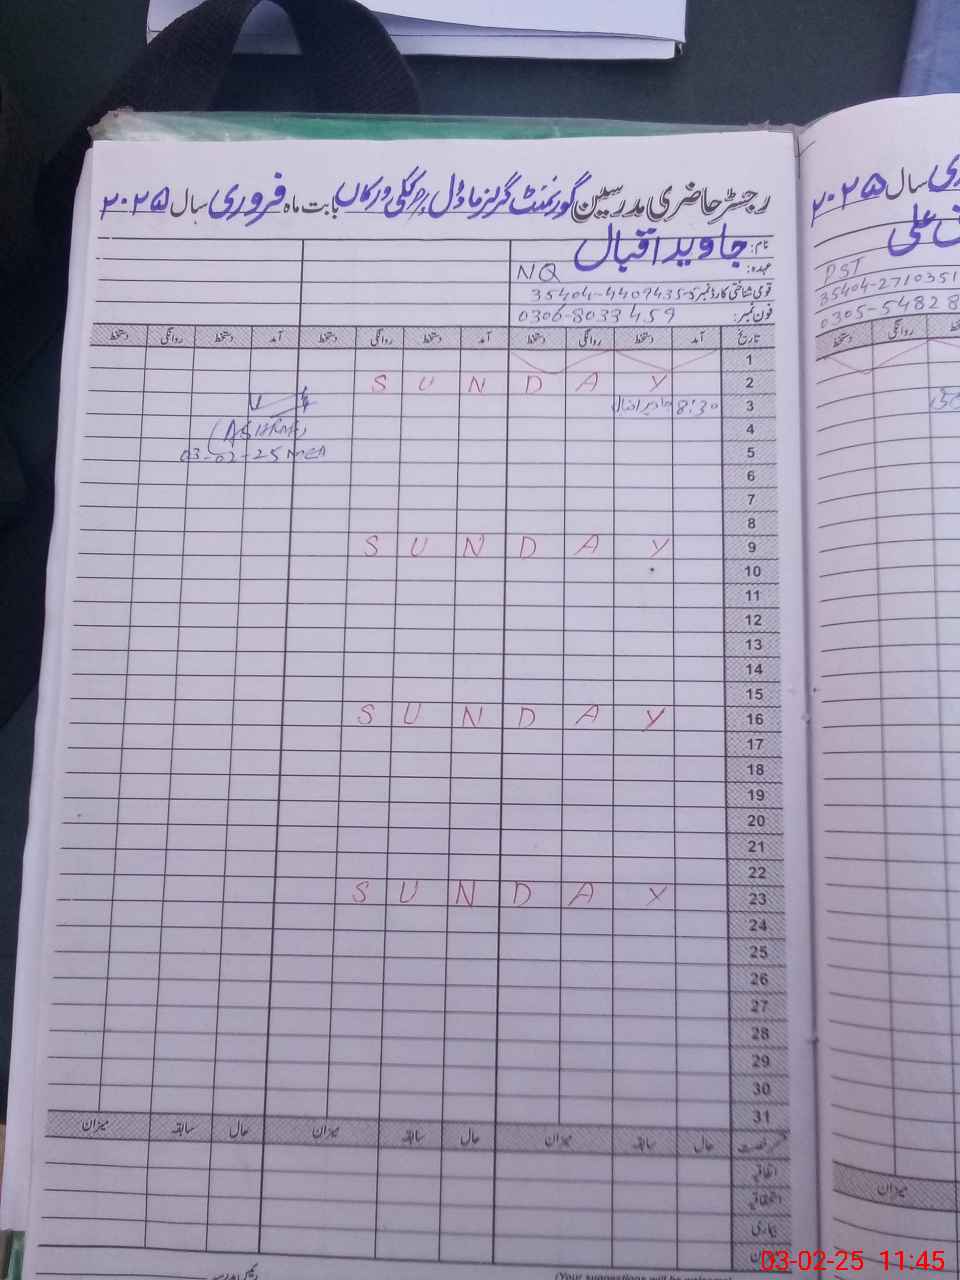 رجسٹر حاضری مدرسین گورنمنٹ گرلز ماڈل پرائمری سکول ورکاں بابت ماہ فروری سال ۲۰۲۵
نام: جاوید اقبال
عہدہ: NQ
قومی شناختی کارڈ نمبر 35404-4409435-5
فون نمبر: 0306-8033459
تاریخ آمد دستخط روانگی دستخط آمد دستخط روانگی دستخط آمد دستخط روانگی دستخط
1
2 SUNDAY
3 8:30 جاوید اقبال
4
5 03-02-25
6
7
8
9 SUNDAY
10
11
12
13
14
15
16 SUNDAY
17
18
19
20
21
22
23 SUNDAY
24
25
26
27
28
29
30
31
حال سابقہ میزان حال سابقہ میزان حال سابقہ میزان
اتفاقیہ
استحقاقیہ
بیماری
(Your suggestions will be welcomed
سال ۲۰۲۵
علی
PST
35404-2710351
0305-54828
روانگی دستخط
میزان
03-02-25 11:45